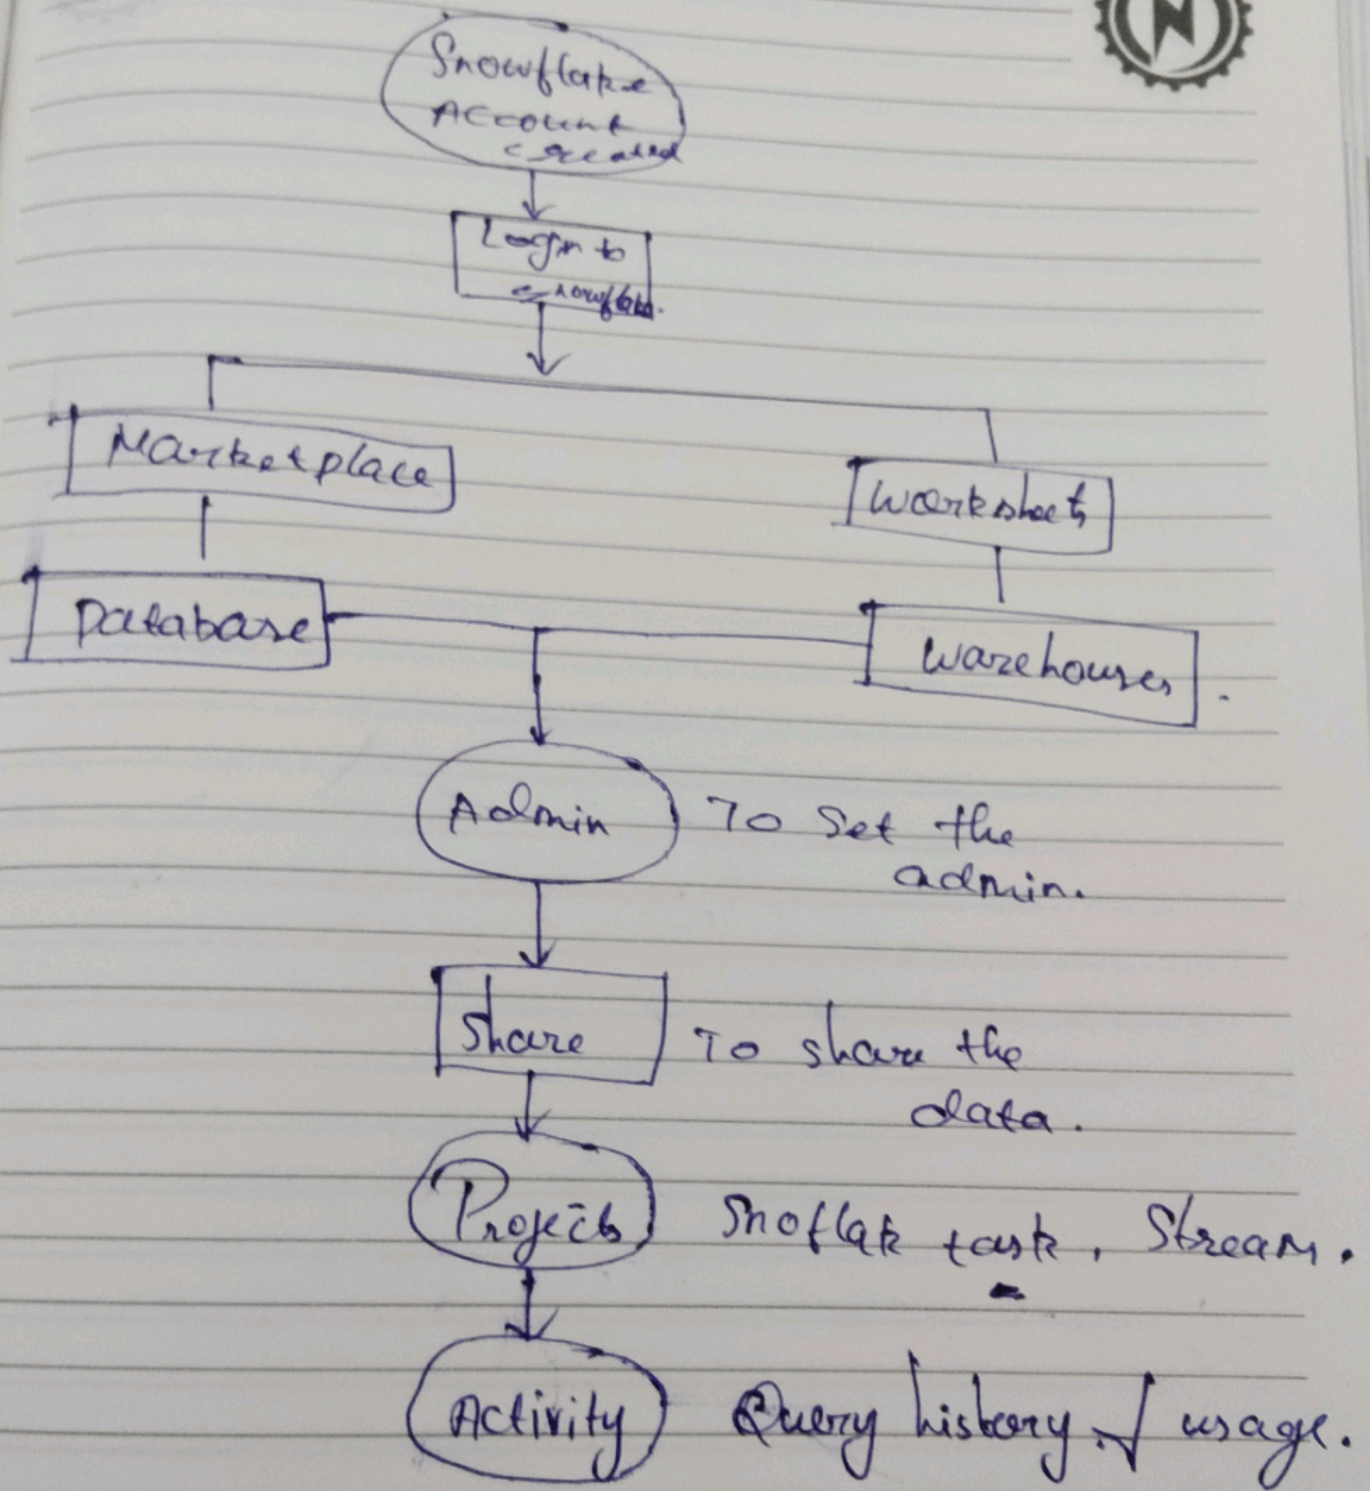 Snowflake
Account
created
Login to
snowflake.
Marketplace
Worksheets
Database
Warehouses.
Admin To Set the
admin.
Share To share the
data.
Projects Snoflak task, Stream.
Activity Query history, / usage.